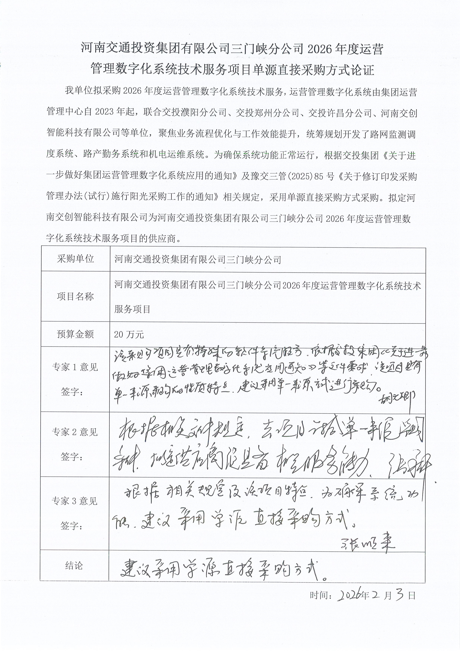 河南交通投资集团有限公司三门峡分公司 2026 年度运营
管理数字化系统技术服务项目单源直接采购方式论证
我单位拟采购 2026 年度运营管理数字化系统技术服务，运营管理数字化系统由集团运营
管理中心自 2023 年起，联合交投濮阳分公司、交投郑州分公司、交投许昌分公司、河南交创
智能科技有限公司等单位，聚焦业务流程优化与工作效能提升，统筹规划开发了路网监测调
度系统、路产勤务系统和机电运维系统。为确保系统功能正常运行，根据交投集团《关于进
一步做好集团运营管理数字化系统应用的通知》及豫交三管(2025)85 号《关于修订印发采购
管理办法(试行)施行阳光采购工作的通知》相关规定，采用单源直接采购方式采购。拟定河
南交创智能科技有限公司为河南交通投资集团有限公司三门峡分公司 2026 年度运营管理数
字化系统技术服务项目的供应商。
采购单位 河南交通投资集团有限公司三门峡分公司
项目名称 河南交通投资集团有限公司三门峡分公司2026年度运营管理数字化系统技术
服务项目
预算金额 20 万元
专家 1 意见
签字：
建议采用单一来源
专家 2 意见
签字：
根据相关文件规定，
专家 3 意见
签字：
根据相关规定及该项目特征，为确保系统功
能，建议采用单源直接采购方式。
张
结论 建议采用单源直接采购方式。
时间：2026年2月3日